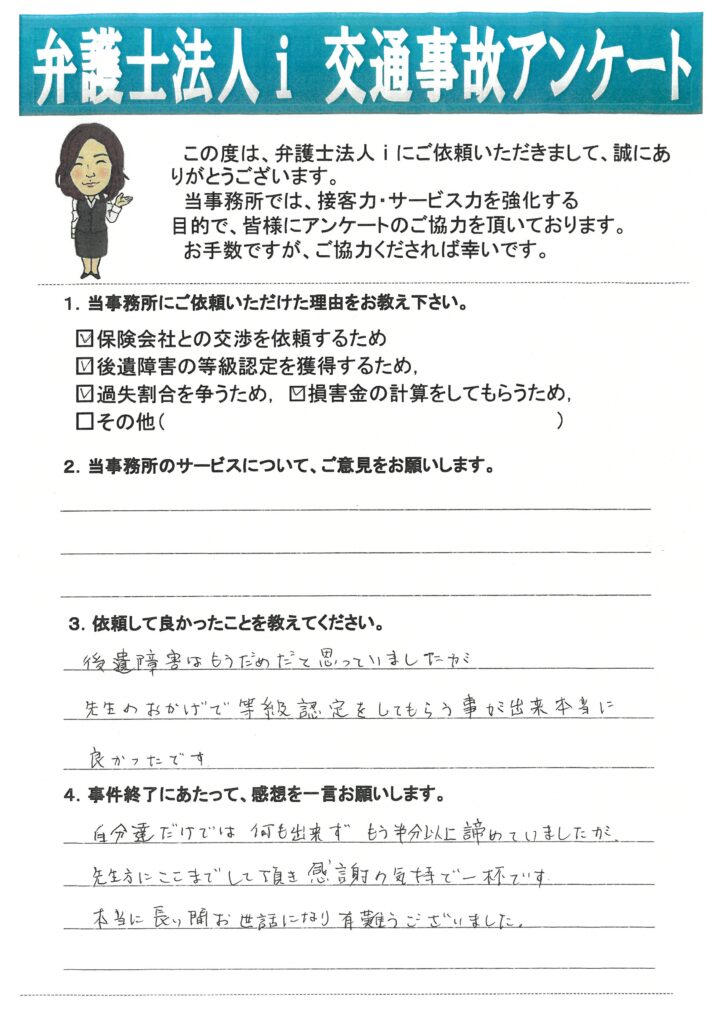 弁護士法人ｉ 交通事故アンケート
この度は、弁護士法人ｉにご依頼いただきまして、誠にあ
りがとうございます。
当事務所では、接客力・サービス力を強化する
目的で、皆様にアンケートのご協力を頂いております。
お手数ですが、ご協力くだされば幸いです。
１．当事務所にご依頼いただけた理由をお教え下さい。
☑保険会社との交渉を依頼するため
☑後遺障害の等級認定を獲得するため，
☑過失割合を争うため， ☑損害金の計算をしてもらうため，
□その他（ ）
２．当事務所のサービスについて、ご意見をお願いします。
３．依頼して良かったことを教えてください。
後遺障害はもうだめだと思っていましたが
先生のおかげで等級認定をしてもらう事が出来本当に
良かったです
４．事件終了にあたって、感想を一言お願いします。
自分達だけでは 何も出来ず もう半分以上諦めていましたが、
先生方にここまでして頂き感謝の気持で一杯です
本当に長い間お世話になり有難うございました。